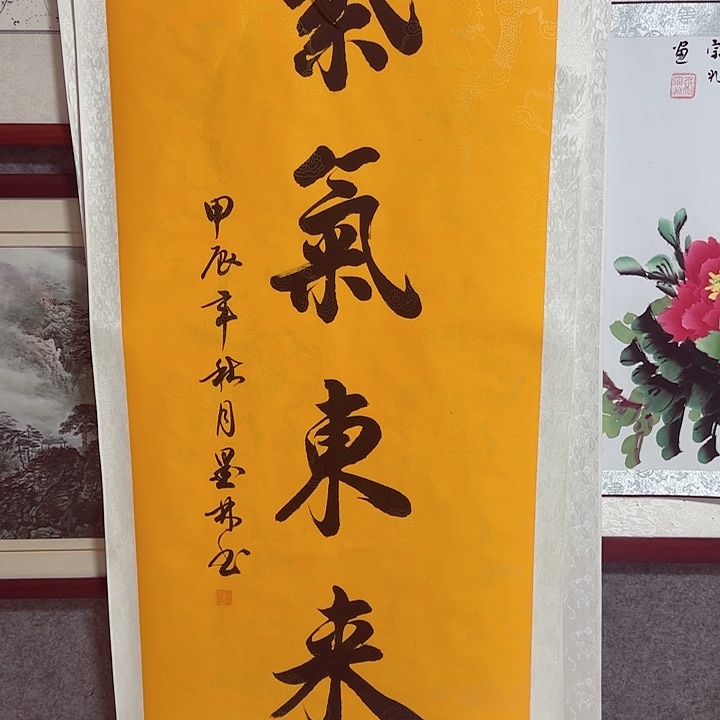 紫氣東来
甲辰年秋月墨林书